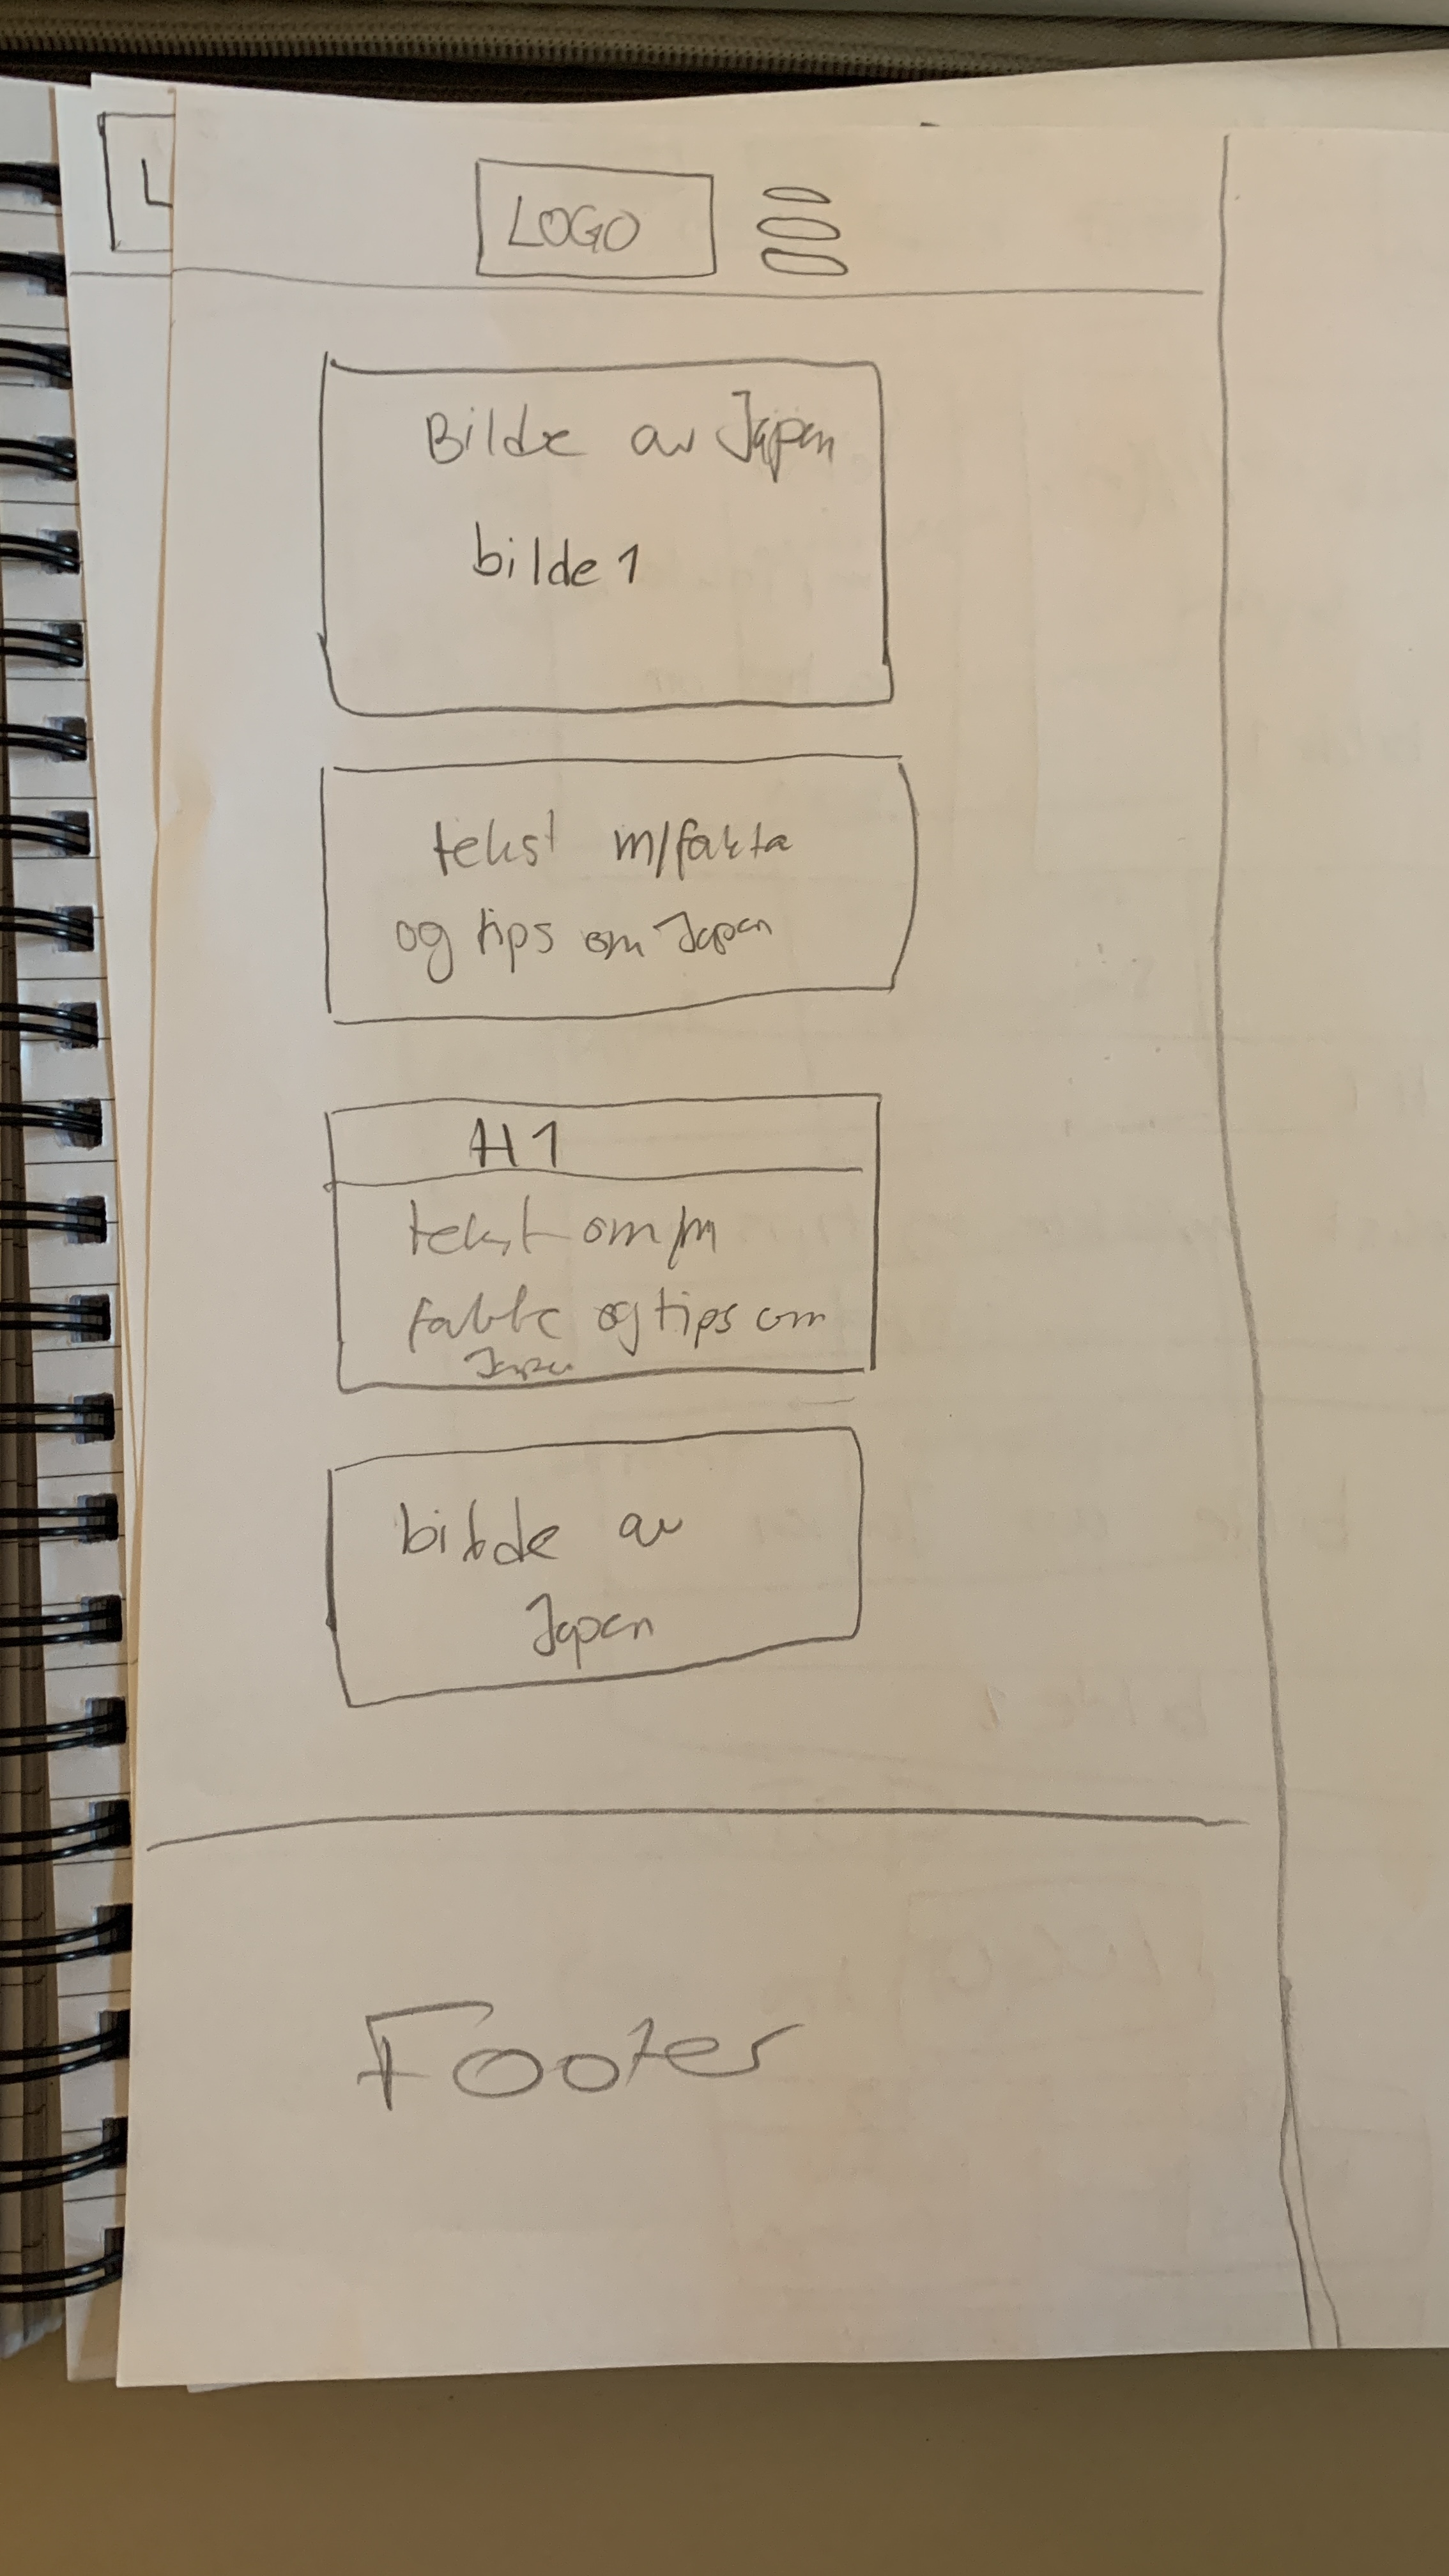 L
LOGO
Bilde av Japan
bilde 1
tekst m/fakta
og tips om Japan
H1
tekst om/m
fakta og tips om
Japan
bilde av
Japan
Footer